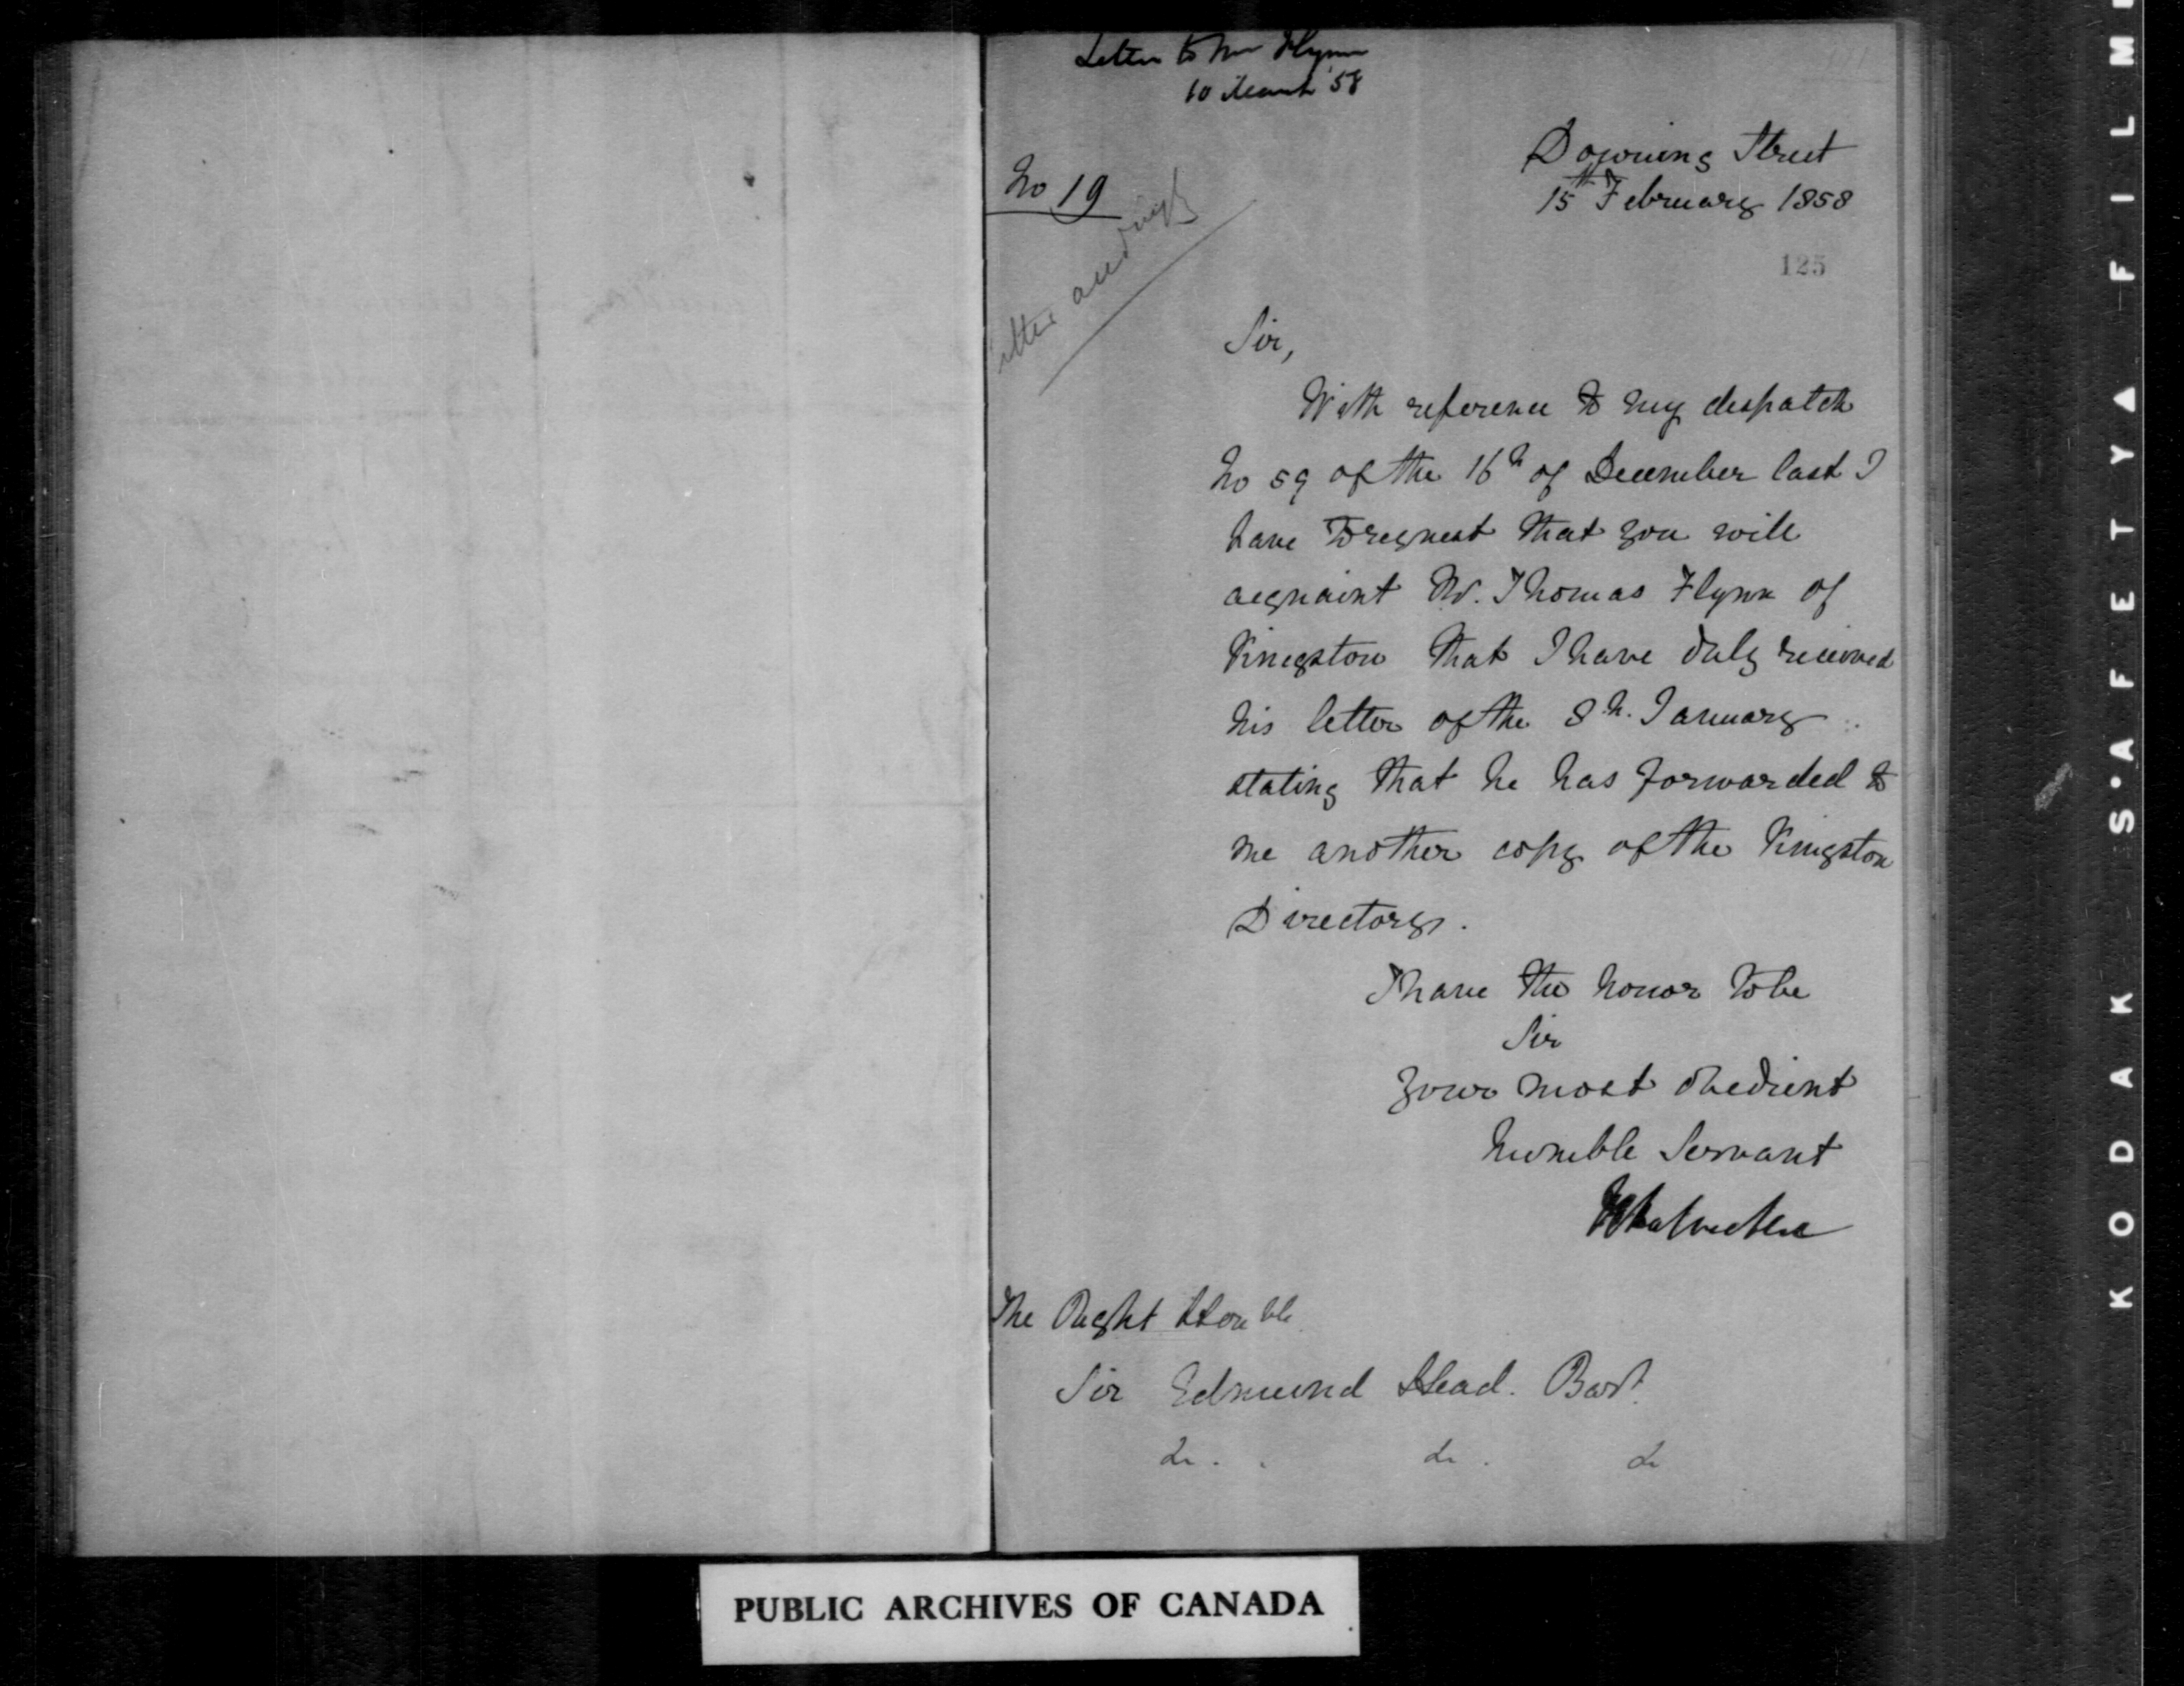 Letter to Mr Flynn
10 March '58
No 19
Downing Street
15th February 1858
125
Sir,
With reference to my despatch
No 59 of the 16th of December last I
have to request that you will
acquaint Mr. Thomas Flynn of
Kingston that I have duly received
his letter of the 8th. January
stating that he has forwarded to
me another copy of the Kingston
Directory.
I have the honor to be
Sir
Your most obedient
humble Servant
The Right Honble
Sir Edmund Head. Bart.
&c. &c. &c
PUBLIC ARCHIVES OF CANADA
KODAK S'AFETY A FILM